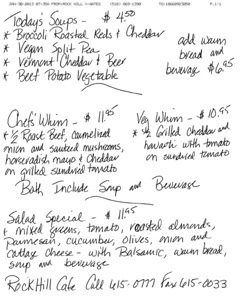 JAN-30-2013 07:35A FROM:ROCK HILL
P:1/1
Todays Soups - $ 4.50
* Broccoli Roasted Reds & Cheddar
* Vegan Split Pea
* Vermont Cheddar & Beer
* Beef Potato Vegetable
add warm
bread and
beverage $6.95
Chefs' Whim - $ 11.95
* ½ Roast Beef, carmelized
onion and sauteed mushrooms,
horseradish mayo & Cheddar
on grilled sundried tomato
Veg Whim - $ 10.95
* ½ Grilled Cheddar and
havarti with tomato
on sundried tomato
Both Include Soup and Beverage
Salad Special - $ 11.95
* mixed greens, tomato, roasted almonds,
parmesan, cucumber, olives, onion and
cottage cheese - with Balsamic, warm bread,
soup and beverage
Rock Hill Cafe Call 615-0777 Fax 615-0033